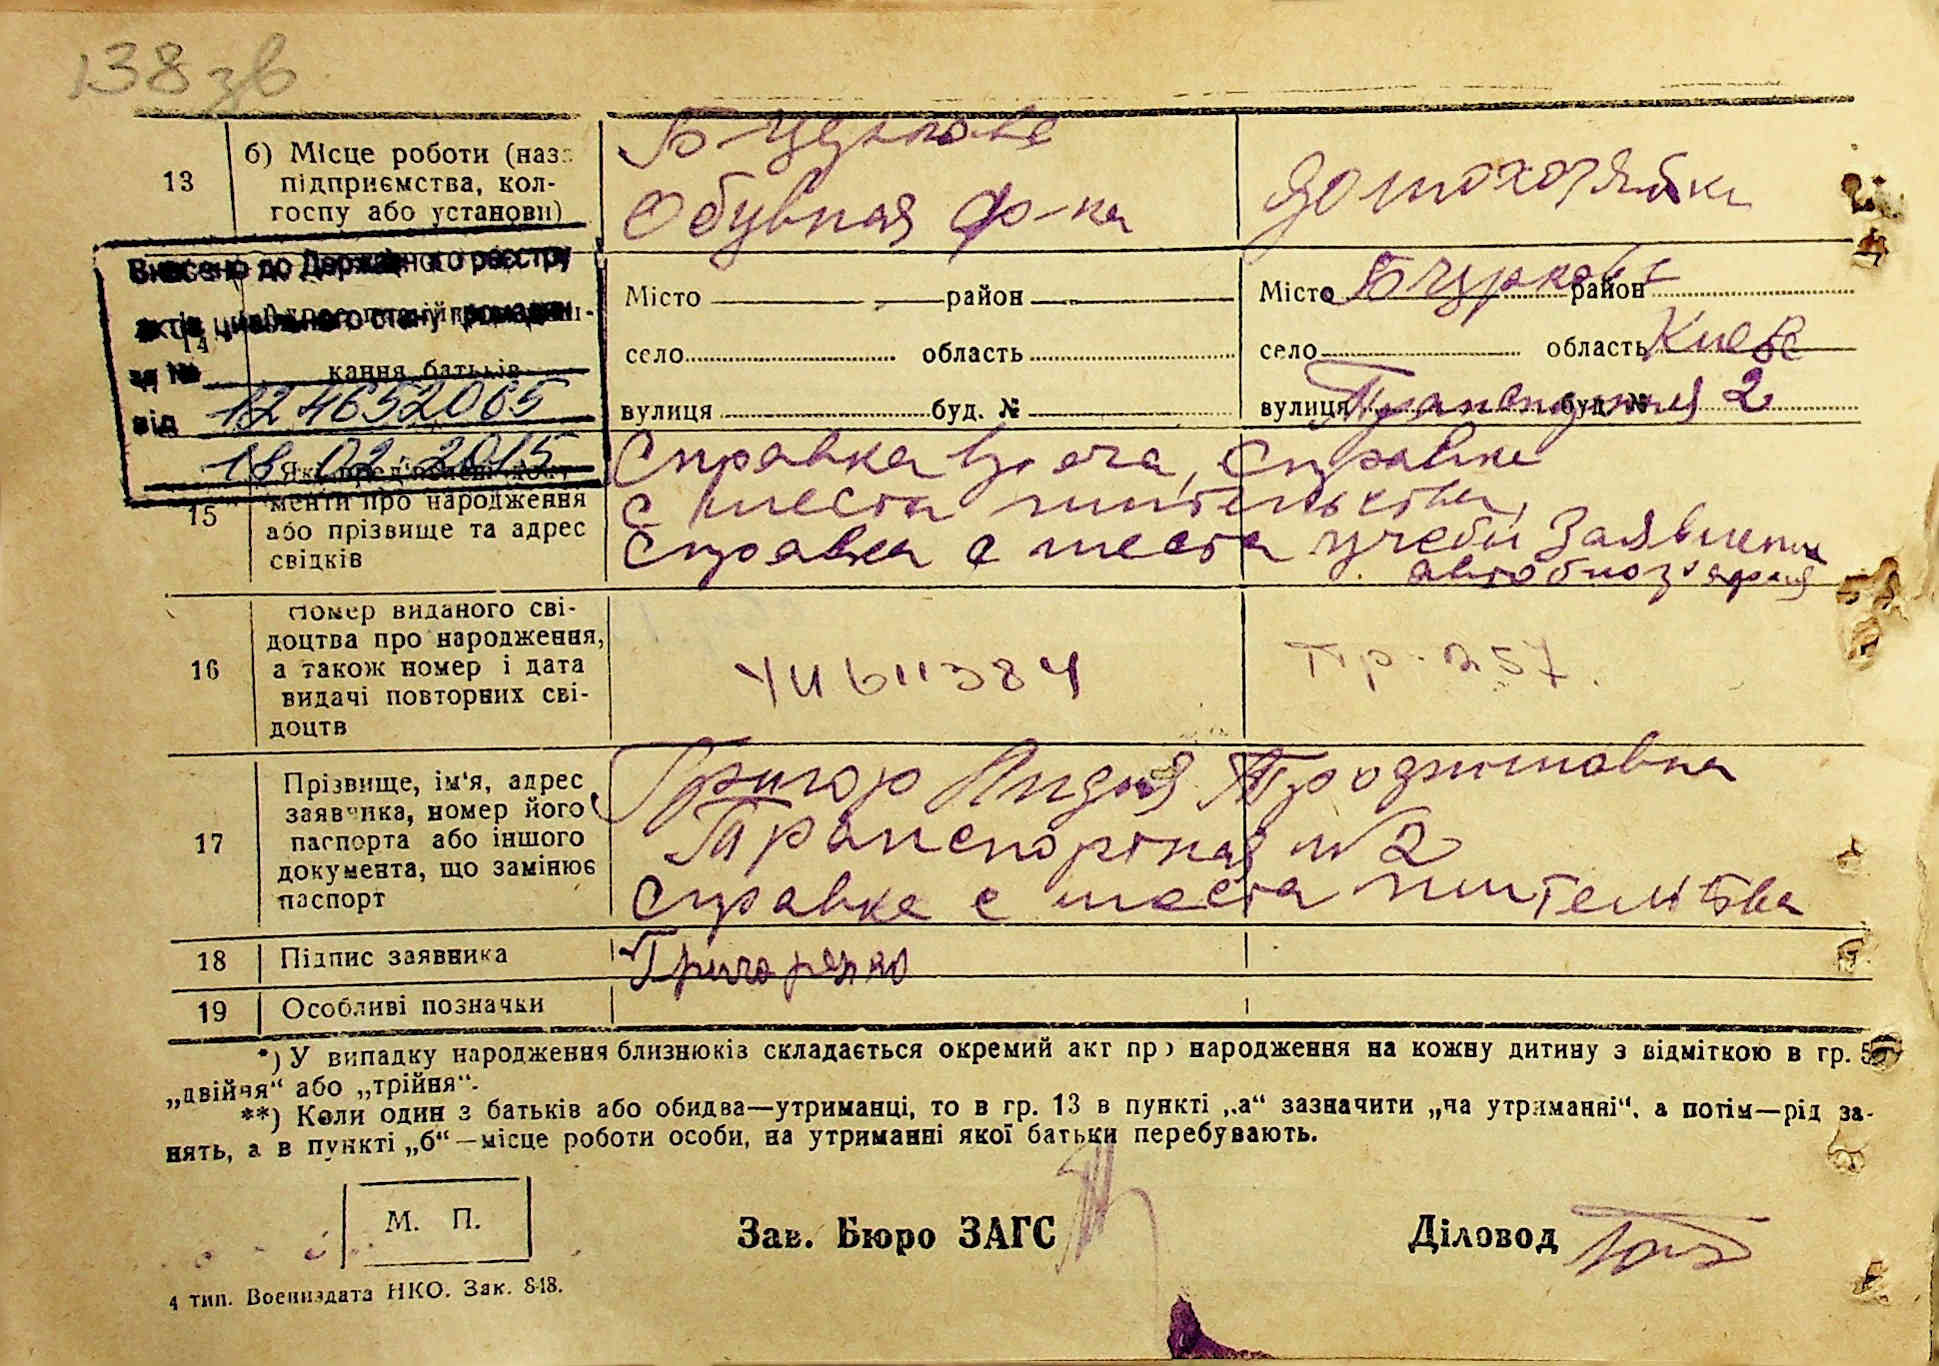 138 зв
13
б) Місце роботи (назва
підприємства, кол-
госпу або установи)
Обувная ф-ка
домохозяйка
Внесено до Державного реєстру
актів цивільного стану громадян
за №
124652065
від
18.02.2015
кання батьків
Місто район
село область
вулиця буд. №
Місто район
село область Киев
вулиця Транспортная буд. № 2
15
менти про народження
або прізвище та адрес
свідків
Справка врача, Справка
с места жительства,
Справка с места учебы Заявление
16
Номер виданого сві-
доцтва про народження,
а також номер і дата
видачі повторних сві-
доцтв
ЧИ 611384
Пр. 257.
17
Прізвище, ім'я, адрес
заявника, номер його
паспорта або іншого
документа, що замінює
паспорт
Григор Лидия
Транспортная № 2
Справка с места жительства
18
Підпис заявника
19
Особливі позначки
*) У випадку народження близнюків складається окремий акт про народження на кожну дитину з відміткою в гр. 5
„двійня“ або „трійня“.
**) Коли один з батьків або обидва—утриманці, то в гр. 13 в пункті „а“ зазначити „на утриманні“, а потім—рід за-
нять, а в пункті „б“—місце роботи особи, на утриманні якої батьки перебувають.
М. П.
Зав. Бюро ЗАГС
Діловод
4 тип. Воениздата НКО. Зак. 848.